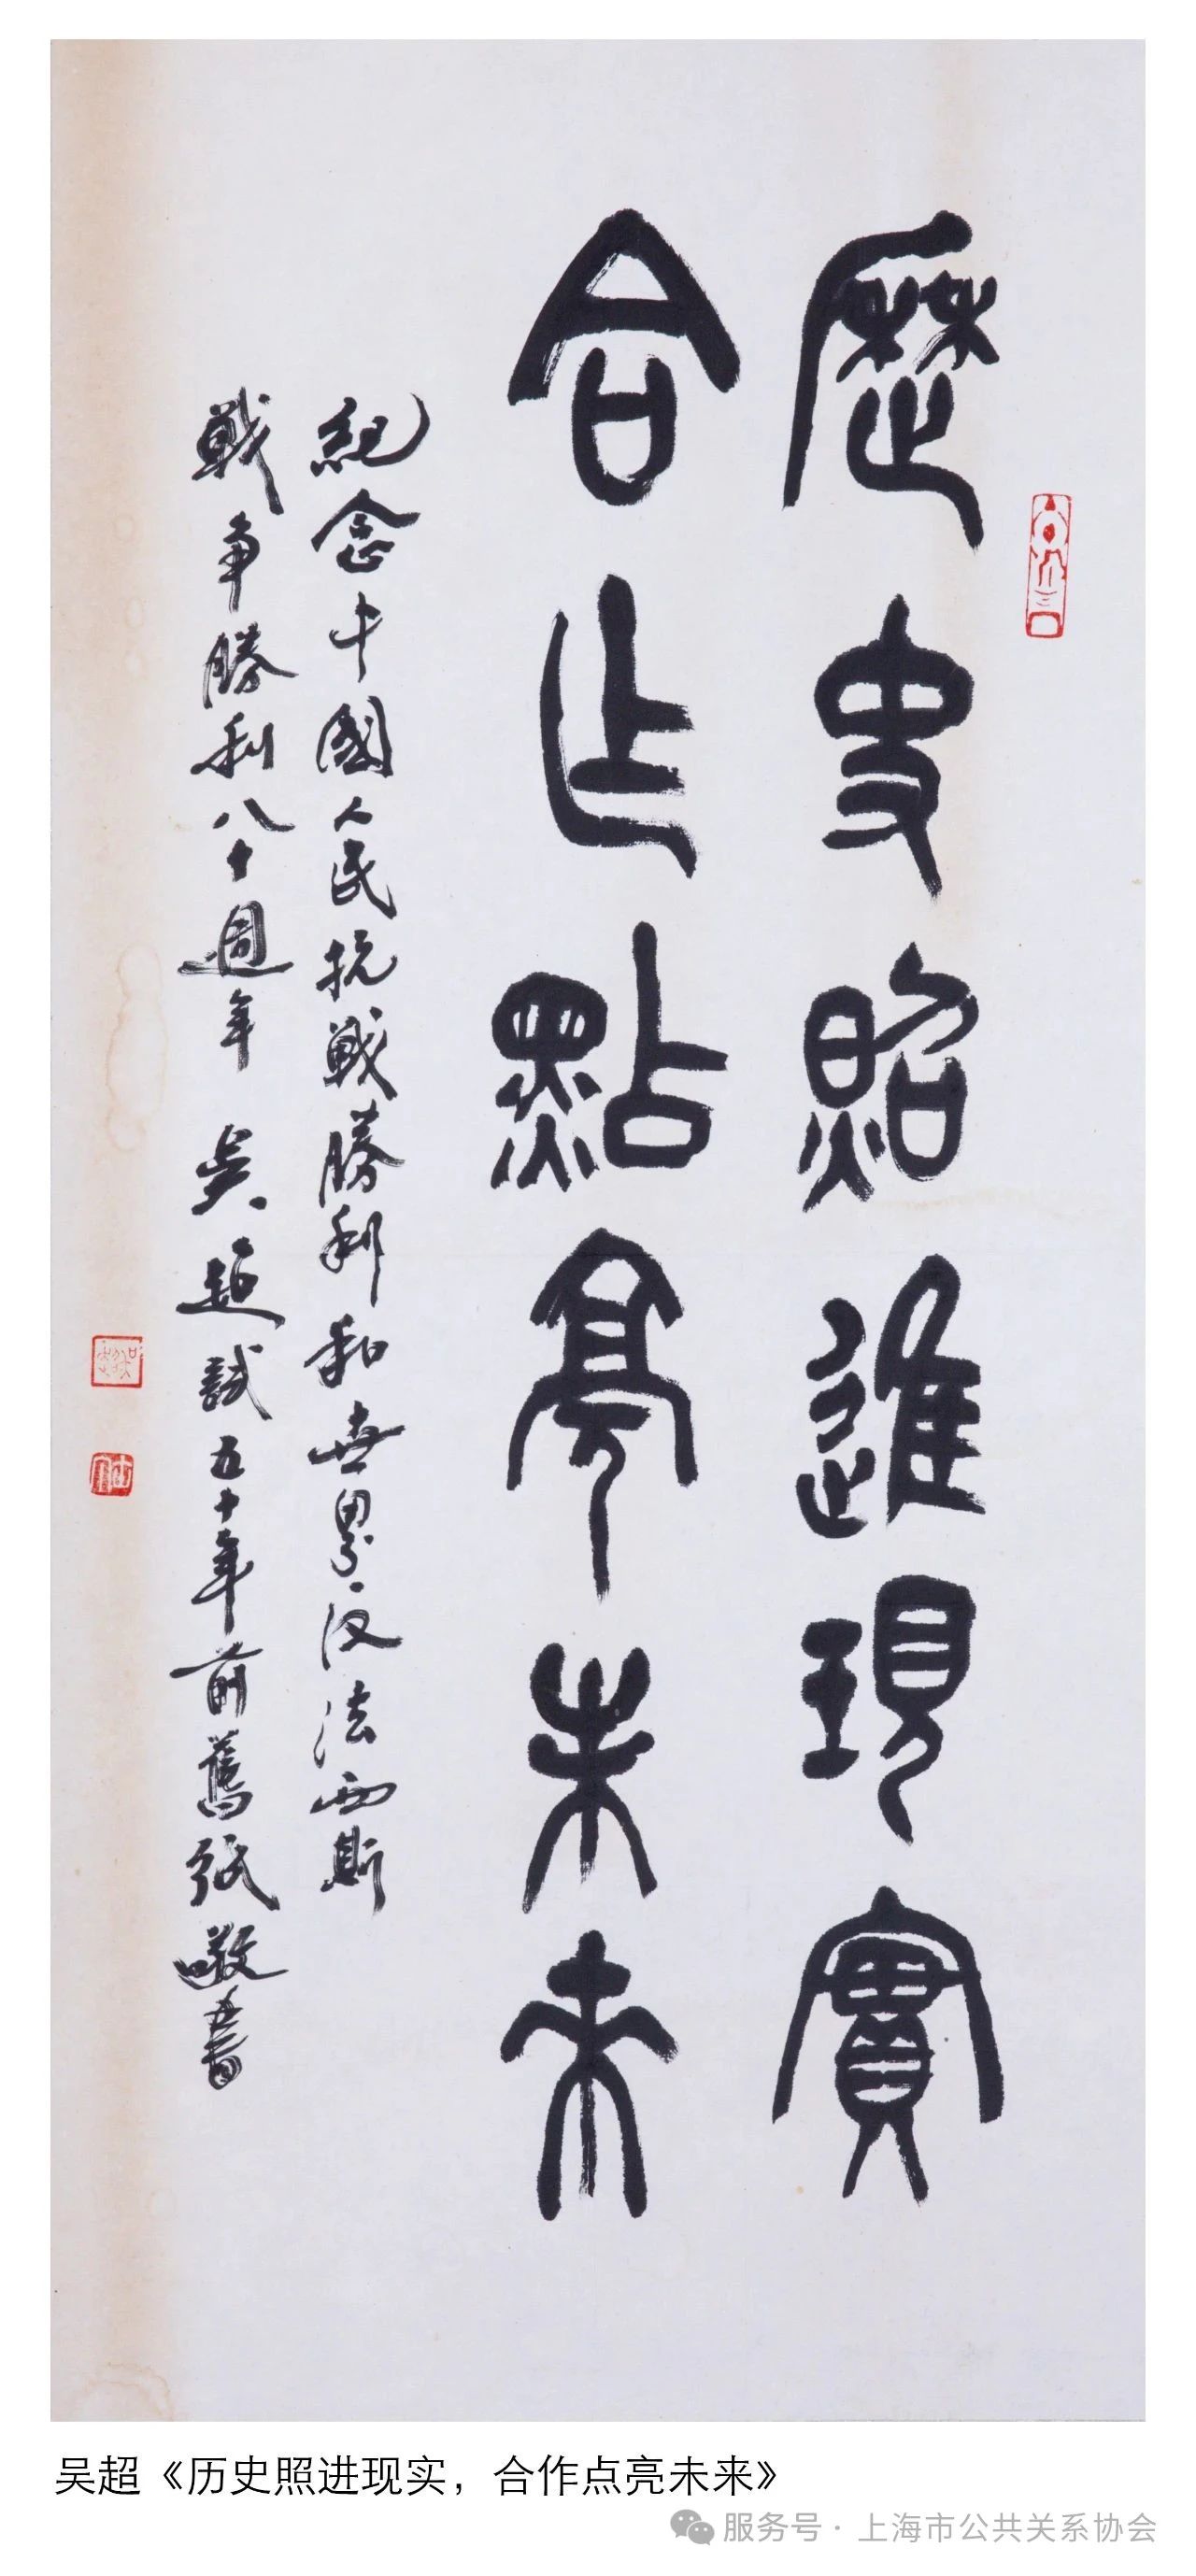 歷史照進現實
合作點亮未來
紀念中國人民抗戰勝利和世界反法西斯
戰爭勝利八十週年 吳超試五十年前舊紙敬書
吴超《历史照进现实，合作点亮未来》
服务号 · 上海市公共关系协会